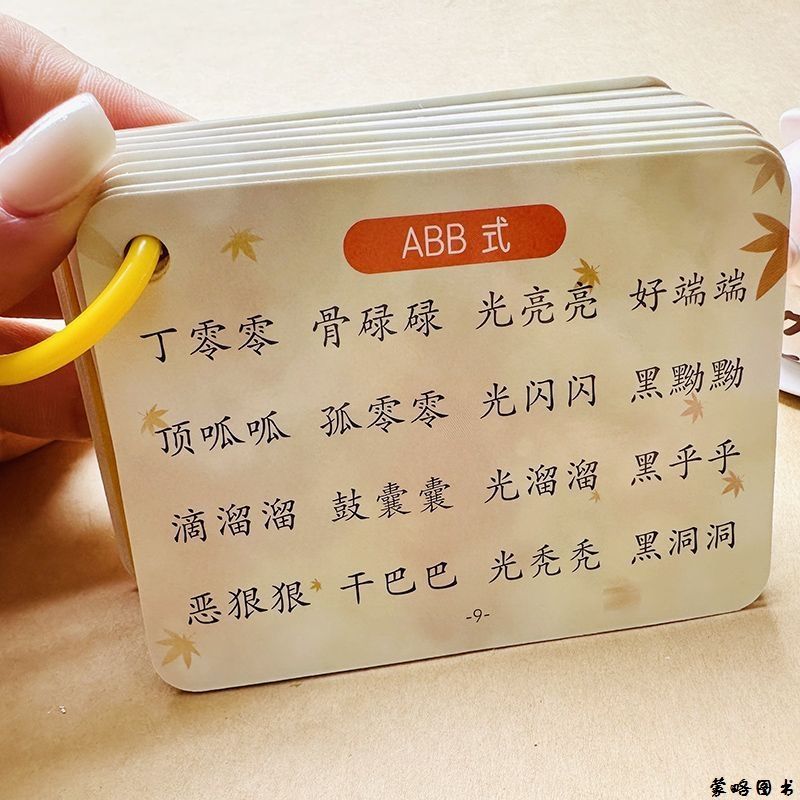 ABB 式
丁零零 骨碌碌 光亮亮 好端端
顶呱呱 孤零零 光闪闪 黑黝黝
滴溜溜 鼓囊囊 光溜溜 黑乎乎
恶狠狠 干巴巴 光秃秃 黑洞洞
-9-
蒙略图书